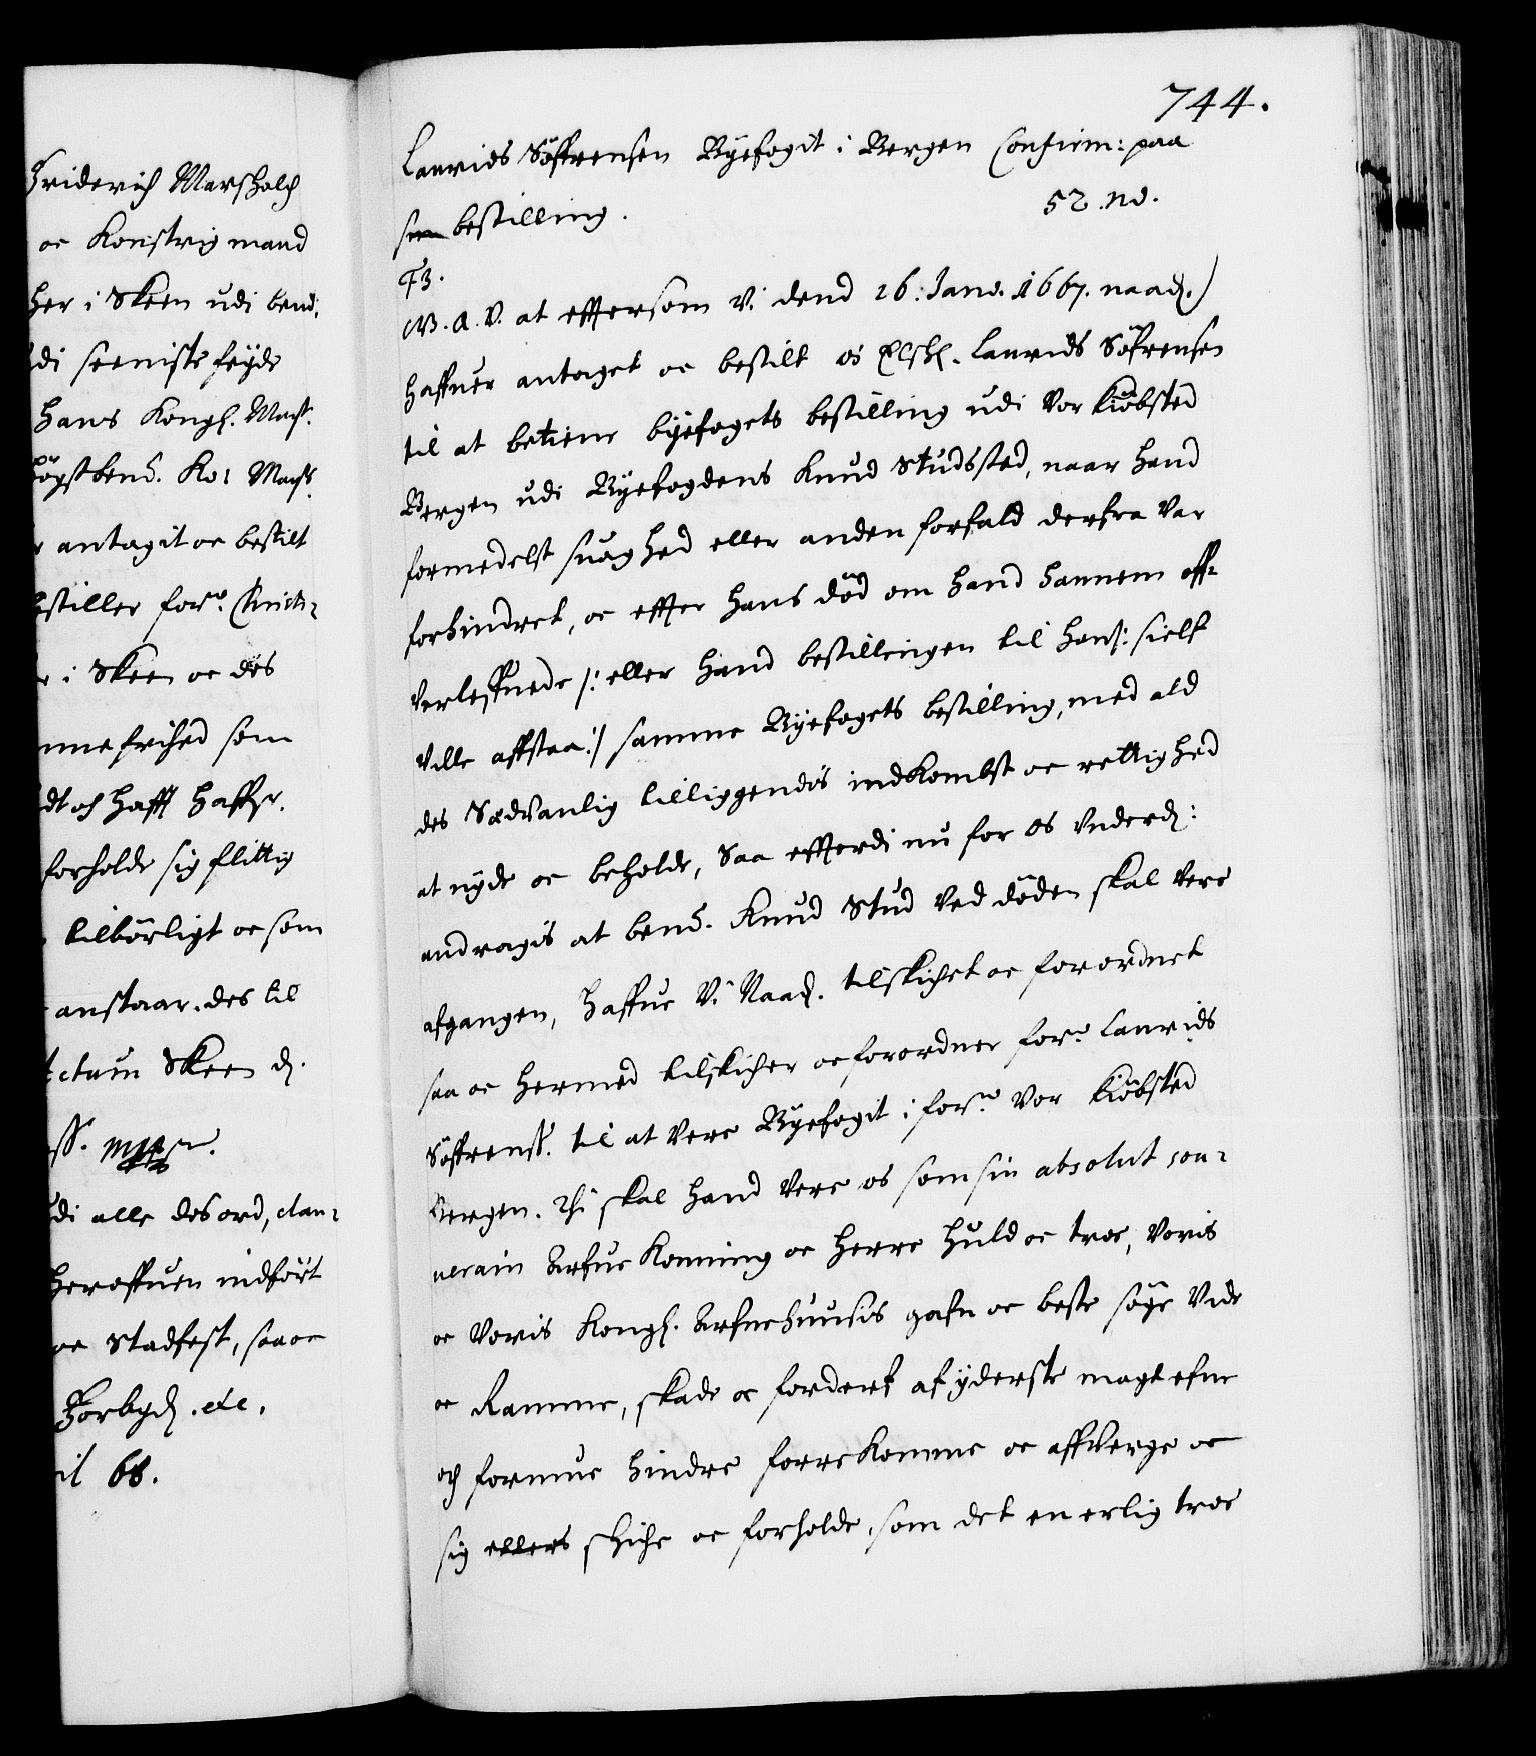 Friderich Marschalch
oc Konstrig mand
her i Skeen udi bend:
di seeniste feyde
Hans Kongl. Mast.
högstbend. Ko: Mast.
antagit oc bestilt
bestiller forne Christi-
i Skeen oc des
frihed som
haffr haffr.
forholde sig flittig
tilbörligt oc som
anstaar. des til
datum Skeen d.
udi alle des ord, clau-
heroffuen indfört
oc stadfest, saa oc
Forbydl. etc.
il 68.
744.
Laurids Söffrensen Byefogit i Bergen Confirm: paa
sin bestilling. 52. no.
F3.
G.A.V. at effersom Vi dend 26. Janv. 1667. naadl.
haffuer antaget oc bestilt os Elskl. Laurids Söfrensen
til at betiene byefogets bestilling udi Vor kiöbsted
Bergen udi Byefogdens Knud Studs sted, naar hand
formedelst suaghed eller anden forfald derfra var
forhindret, oc effter hans död om hand hannem off-
verleffuede /: eller hand bestillingen til hans: sielf
Ville affstaa :/ samme Byefogets bestilling, med ald
des Sædvanlig tilliggendis indkombst oc rettighed
at nyde oc beholde, Saa efftterdi nu for os Underdl:
andragis at bend. Knud Stud ved döden skal vere
afgangen, haffue Vi Naadl. tilskichet oc forordnet
saa oc hermed tilskicher oc forordner forne Laurids
Söffrenss. til at vere Byefogit i forne Vor kiöbsted
Bergen. Thi skal hand vere os som sin absolut sou-
verain Arfue Konning oc Herre huld oc troe, Voris
oc Voris Kongl. Arfuehuusis gafn oc beste söge Vide
oc Ramme, skade oc forderf af yderste magt efne
och formue hindre forrekomme oc affverge oc
sig ellers schiche oc forholde, som det en erlig troe